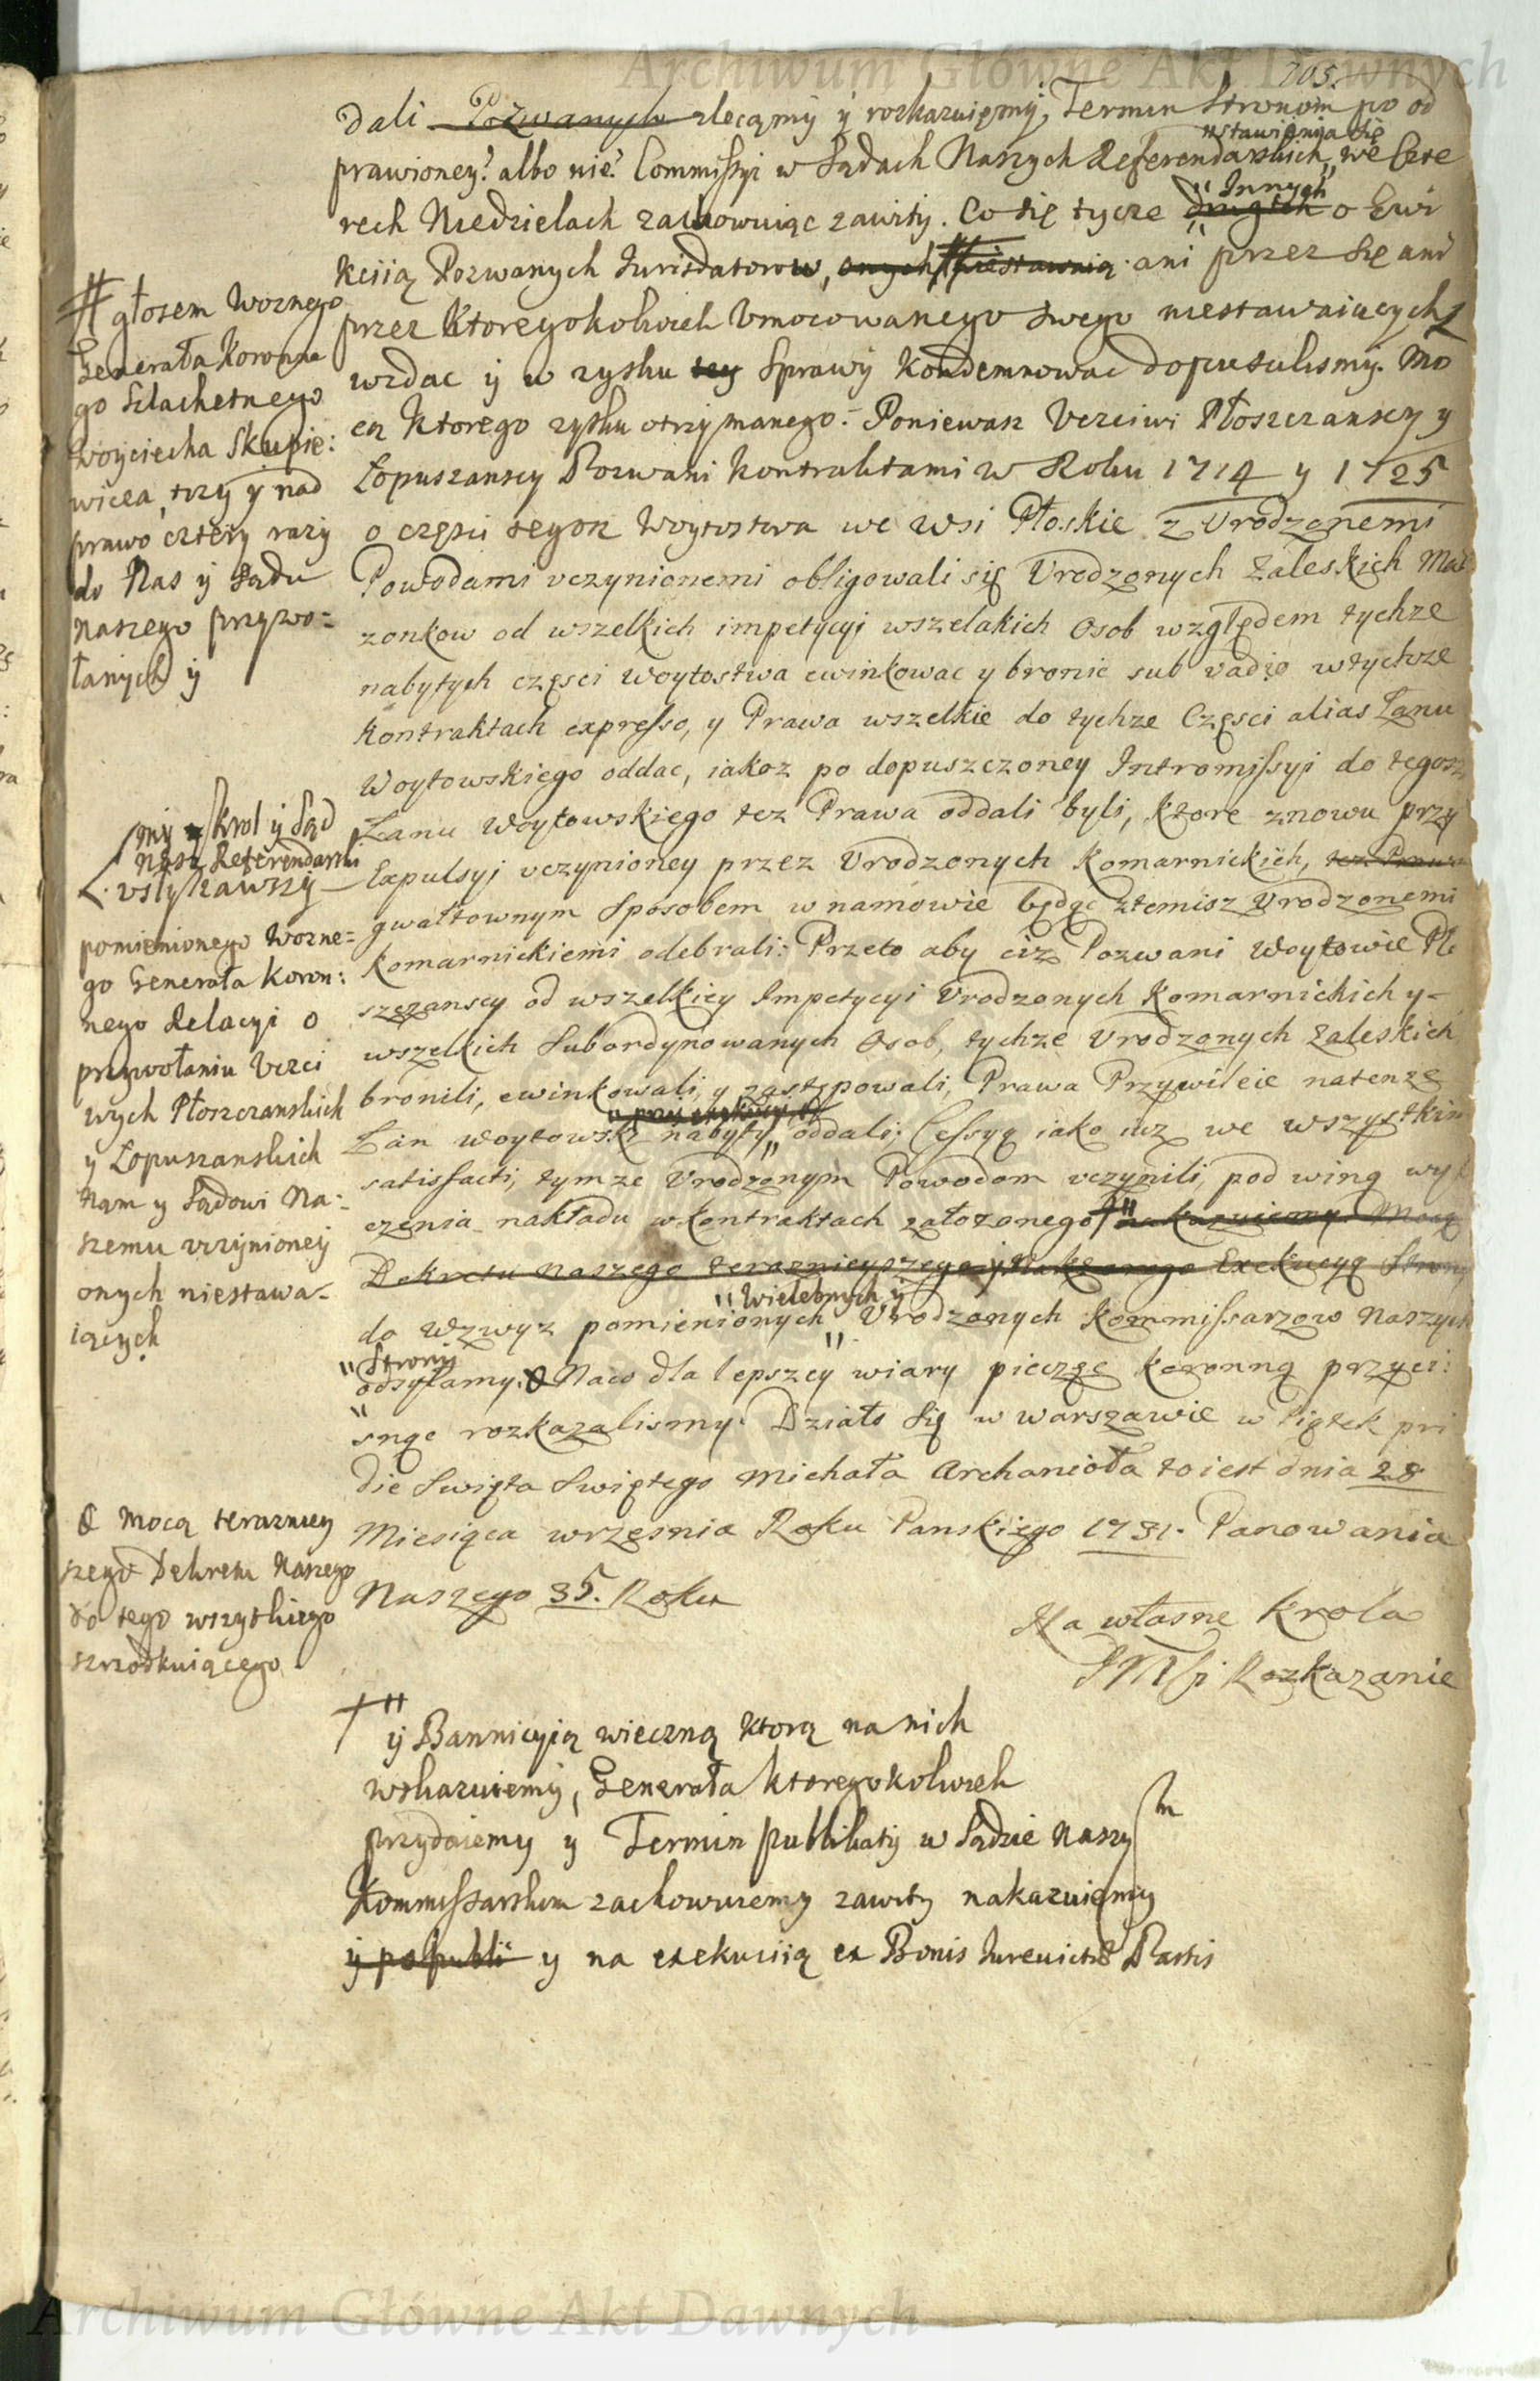 Archiwum Główne Akt Dawnych
705.
dali Pozwanych zlecamy y rozkazuięmy, Termin Stronom po od
"stawienia się
prawioney? albo nie? Commissyi w Sądach Naszych Referendarskich, we Czte
"Innych
rech Niedzielach zachowuiąc zawity. Co się tycze drugich o Ewi
kcyią Pozwanych Iurisdatorow, onych # niestawaią ani przez się ani
przez ktoregokolwiek Vmocowanego swego niestawaiących
wzdac y w zysku tey Sprawy kondemnowac dopusculismy. Mo
cą ktorego zysku otrzymanego. Poniewasz Vcziwi Płoszczanscy y
Łopuszanscy Pozwani kontraktami w Roku 1714 y 1725
o częsci tegosz Woytostwa we wsi Płoskie z Vrodzonemi
Powodami vczynionemi obligowali się Vrodzonych Zaleskich Mał
zonkow od wszelkich impetycyi wszelakich Osob względem tychze
nabytych częsci Woytostwa ewinkowac y bronic sub vadio wtychze
kontraktach expresso, y Prawa wszelkie do tychze Częsci alias Łanu
Woytowskiego oddac, iakoz po dopuszczoney Intromissyi do tegosz
Łanu Woytowskiego tez Prawa oddali byli, ktore znowu przy
Expulsyi vczynioney przez Vrodzonych Komarnickich, tez Prawa
gwałtownym Sposobem w namowie będąc ztemisz Vrodzonemi
Komarnickiemi odebrali: Przeto aby ciz Pozwani Woytowie Pło
szczanscy od wszelkiey Impetycyi Vrodzonych Komarnickich y
wszelkich Subordynowanych Osob, tychze Vrodzonych Zaleskich
bronili, ewinkowali, y zastępowali, Prawa Przywileie natenze
Łan Woytowski nabyty oddali, Cessyą iako iuz we wszystkim
satisfacti, tymze Vrodzonym Powodom vczynili, pod winą wyl
czenia nakładu w kontraktach załozonego # nakazuiemy. Mocą
Dekretu naszego teraznieyszego y Nakazanego Exekucyą Strony
"Wielebnych y
do Wzwyz pomienionych Vrodzonych Kommissarzow Naszych
"Strony
odsyłamy. Na co dla lepszey wiary pieczęc koronną przyci:
snąc rozkazalismy. Działo się w Warszawie w Piątek pri
die Swięta Swiętego Michała Archanioła to iest dnia 28
Miesiąca wrzesnia Roku Panskiego 1731. Panowania
Naszego 35. Roku
Na własne Krola
JMsci Rozkazanie
# głosem Woznego
Generała Koronne
go Szlachetnego
Woyciecha Skupie:
wicza, trzy y nad
prawo cztery razy
do Nas y Sądu
naszego przywo-
łanych y
my Krol y Sąd
nasz Referendarski
vsłyszawszy
pomienionego Wozne-
go Generała Koron:
nego Relacyi o
przywołaniu Vczci
wych Płoszczanskich
y Łopuszanskich
Nam y Sądowi Na-
szemu vczynioney
onych niestawa-
iących
& Mocą teraznieÿ
szego Dekretu Naszego
do tego wszytkiego
szrzodkuiącego
y Bannicyią wieczną ktorą na nich
wskazuiemy, Generała ktoregokolwiek
przydaiemy y Termin publikaty w Sądzie Naszym
Kommissarskim zachowuiemy zawity nakazuiemy
y po publi y na exekuciią ex Bonis Iurevictæ Partis
Archiwum Główne Akt Dawnych